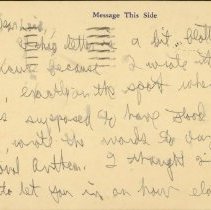 Message This Side
This letter is a bit
because I wrote it
exactly on the spot where
supposed to have stood
wrote the words to our
Anthem. I thought I
to let you in on how